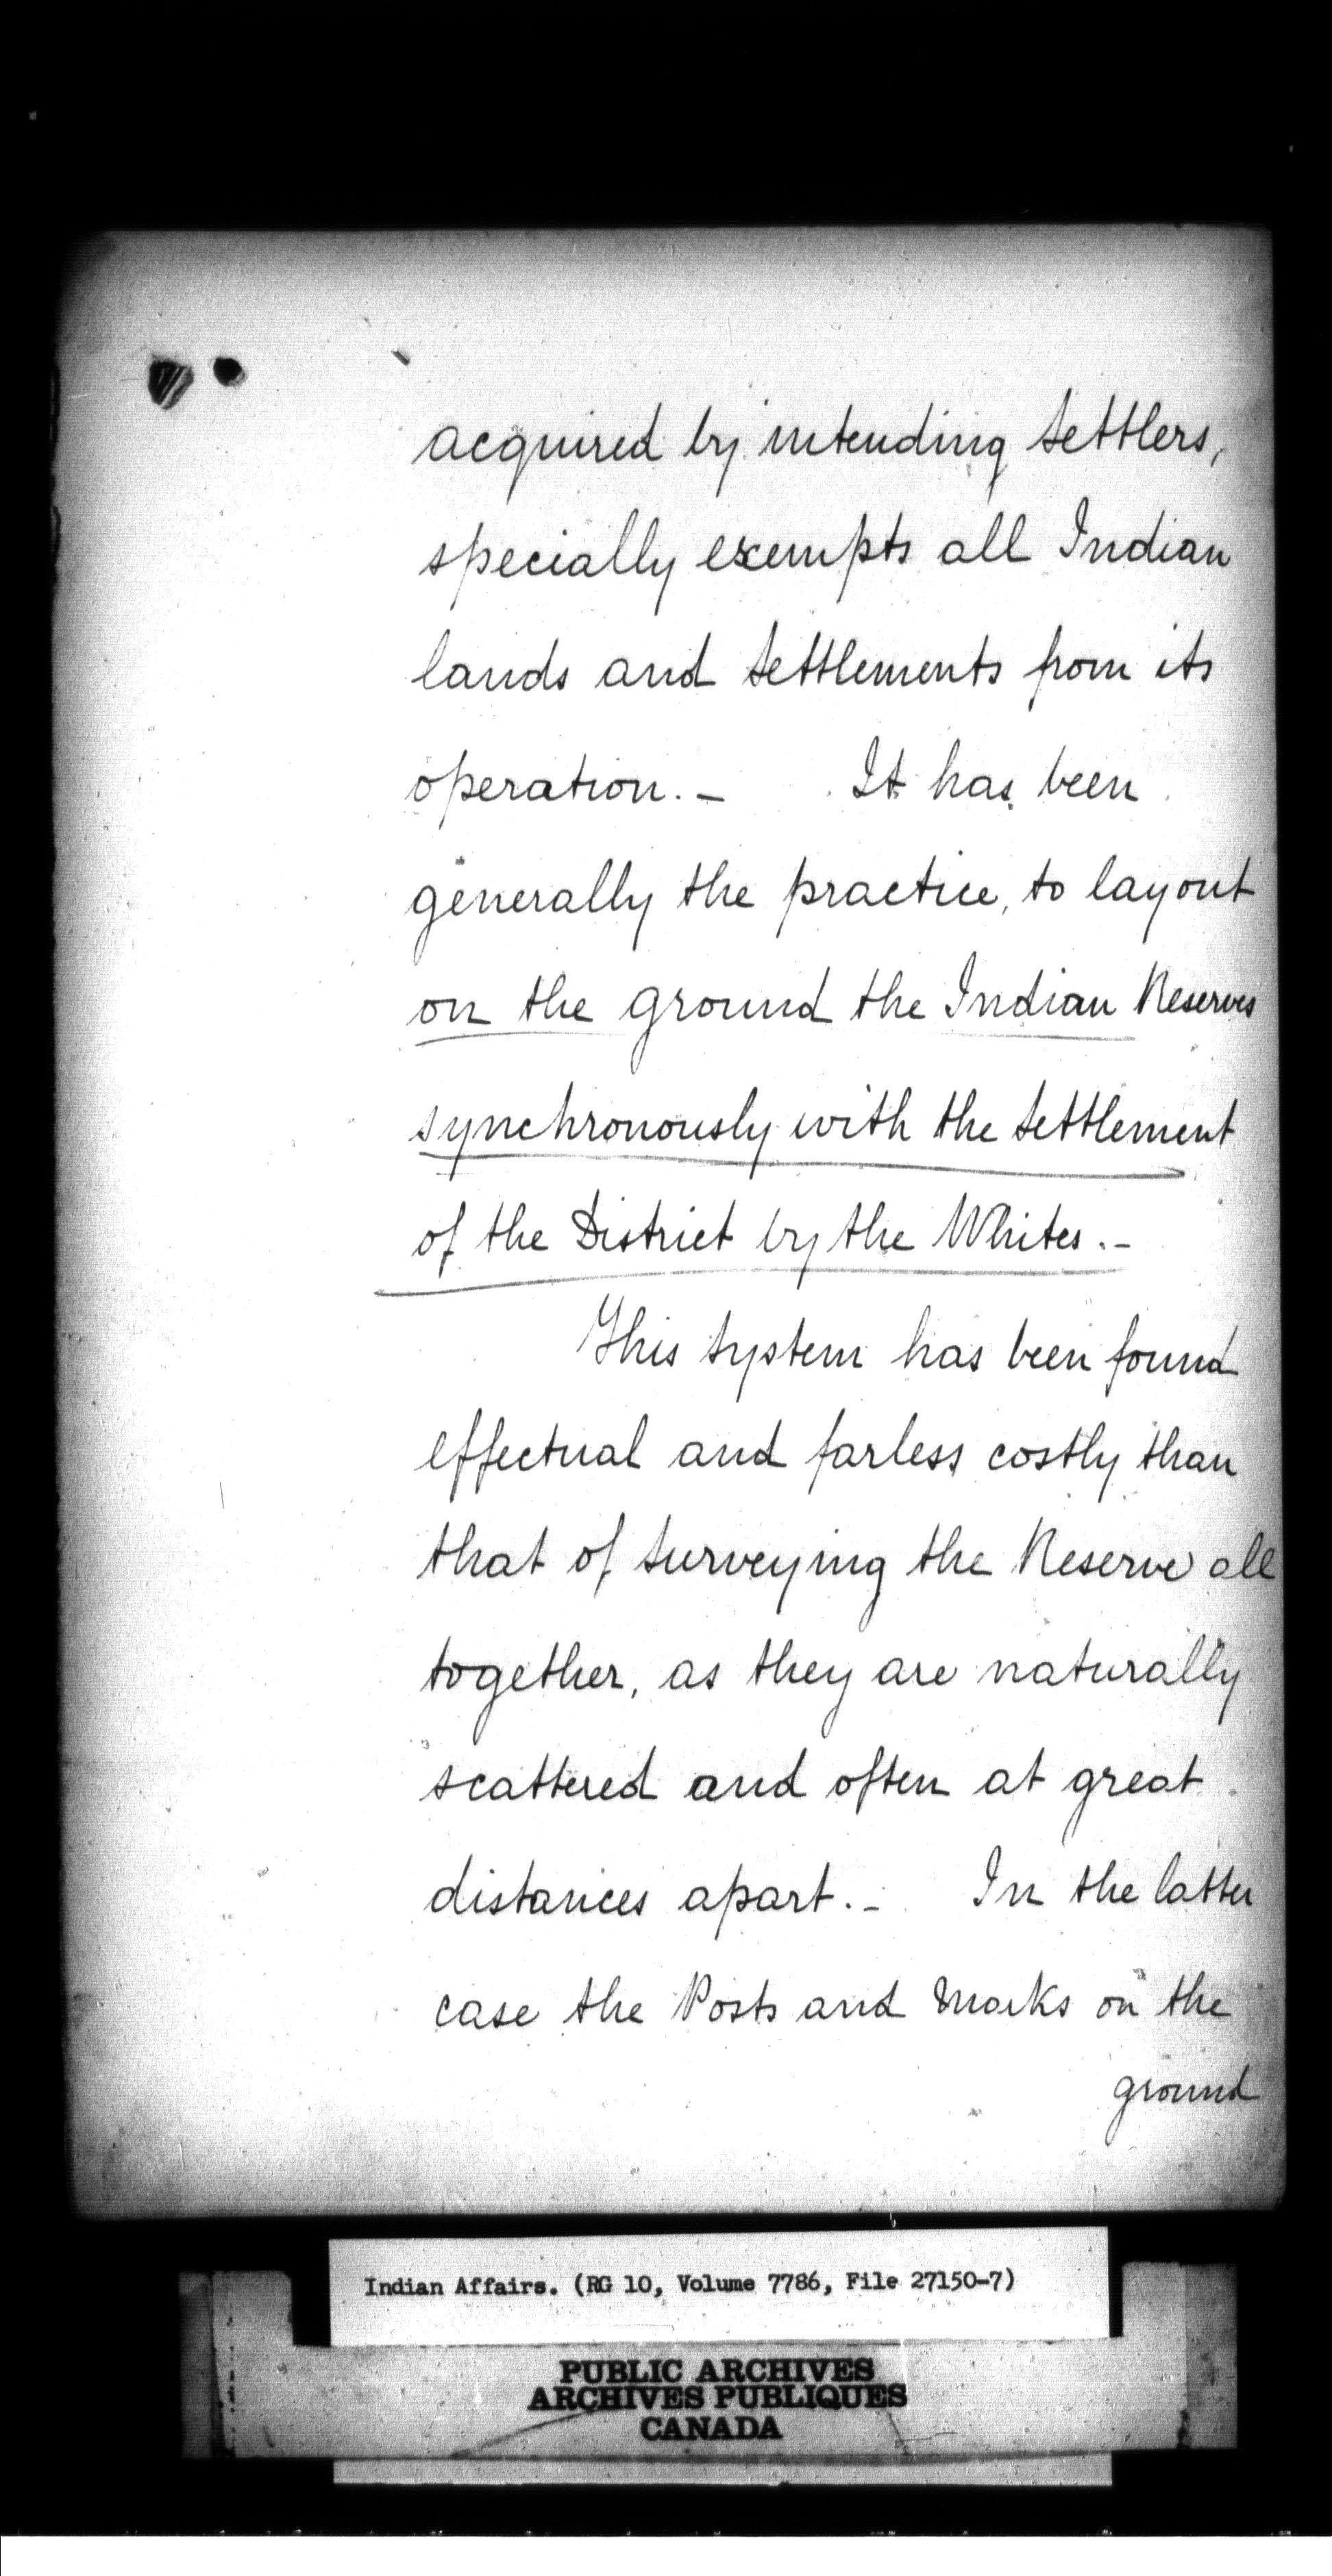 acquired by intending settlers,
specially exempts all Indian
lands and settlements from its
operation. – It has been
generally the practice, to layout
on the ground the Indian Reserves
synchronously with the settlement
of the District by the Whites. –
This system has been found
effectual and far less costly than
that of surveying the Reserve all
together, as they are naturally
scattered and often at great
distances apart. – In the latter
case the Posts and Marks on the
ground
Indian Affairs. (RG 10, Volume 7786, File 27150-7)
PUBLIC ARCHIVES
ARCHIVES PUBLIQUES
CANADA